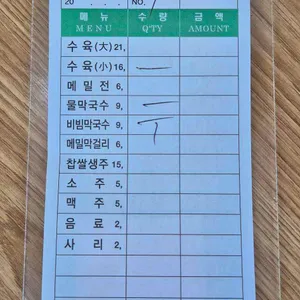 20 . . . NO. 1
메뉴 수량 금액
MENU Q'TY AMOUNT
수육(大) 21,
수육(小) 16, 一
메밀전 6,
물막국수 9, 一
비빔막국수 9, ㅜ
메밀막걸리 6,
찹쌀생주 15,
소주 5,
맥주 5,
음료 2,
사리 2,